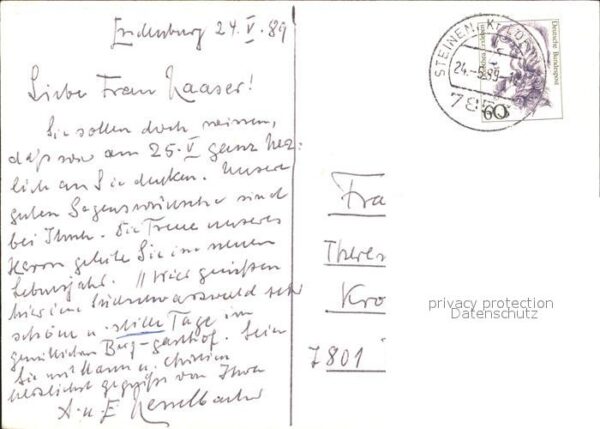 Endenburg 24.V.89
Liebe Frau Kaaser!
Sie sollen doch wissen,
daß wir am 25.V ganz herz=
lich an Sie denken. Unsere
guten Segenswünsche sind
bei Ihnen. Die Treue unseres
Herrn geleite Sie im neuen
Lebensjahr. // Wir genießen
hier im Südschwarzwald sehr
schöne u. stille Tage im
gemütlichen Berg-gasthof. Seien
Sie mit Mann u. Christian
herzlichst gegrüßt von Ihren
A. u. E. Kesselbacher
STEINEN, KR LÖR
24.-5.89-16
7853
Deutsche Bundespost
60
Fra
Theres
Kro
7801
privacy protection
Datenschutz